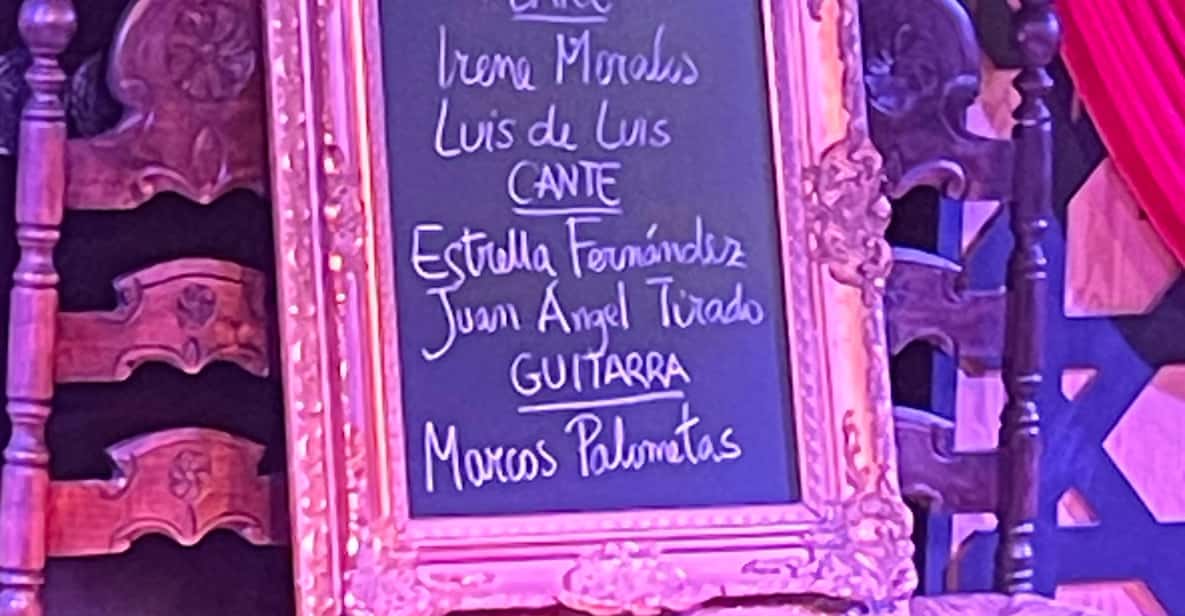 Irene Morales
Luis de Luis
CANTE
Estrella Fernández
Juan Ángel Tirado
GUITARRA
Marcos Palometas